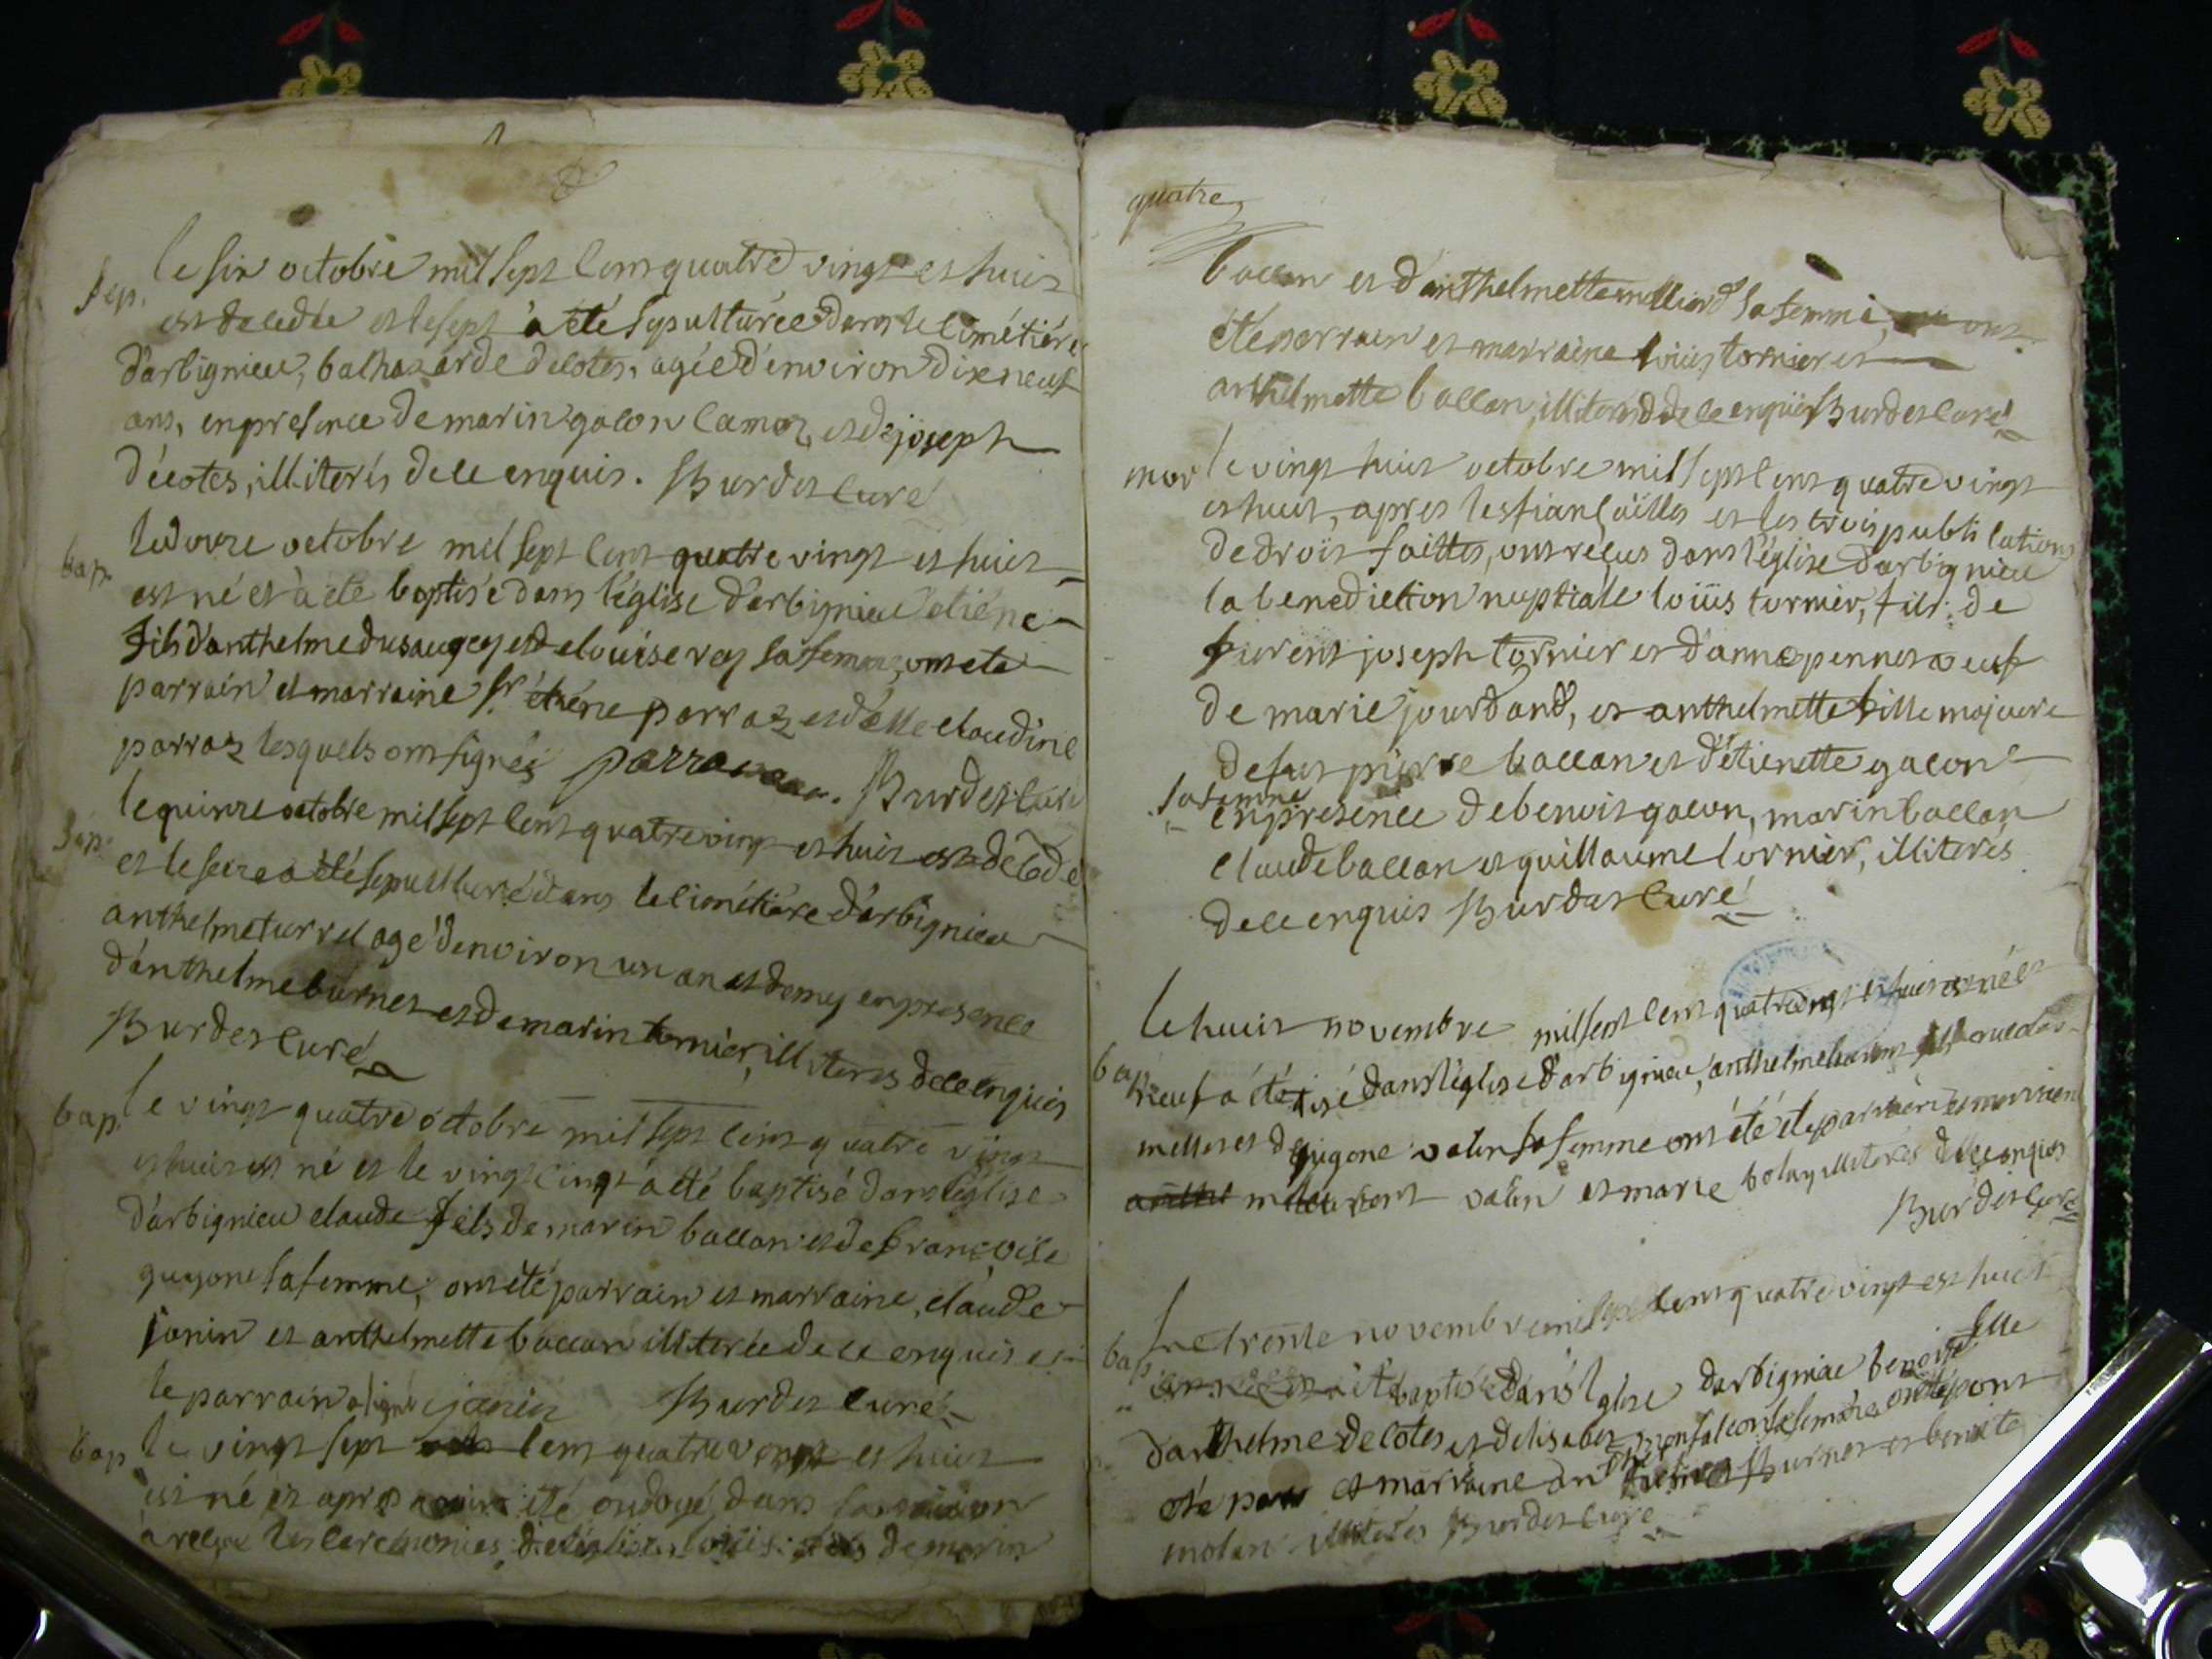 Sep. le six octobre mil sept cent quatre vingt et huit
est decedée et le sept à été sepulturée dans le cimétiére
d'arbignieu, balthazarde decotes, agée d'environ dix neuf
ans, en presence de marin galon lamoz, et de joseph
décotes, illiterés de ce enquis. Burdet curé
bap. le douze octobre mil sept cent quatre vingt et huit
est né et à été baptisé dans l'église d'arbignieu etiéne
fils d'anthelme dusaugey et de louise rey sa femme, ont ete
parrain et marraine Sr. etiéne parraz et delle claudine
parraz lesquels ont signés parraz Burdet curé
Sep. le quinze octobre mil sept cent quatre vingt et huit est décedé
et le seize a été sepulturé dans le cimétiére d'arbignieu
anthelme turrel agé d'environ un an et demy en presence
d'anthelme burnet et de marin tornier, illiterés de ce enquis
Burdet curé
bap. le vingt quatre octobre mil sept cent quatre vingt
et huit est né et le vingt cinq à été baptisé dans l'église
d'arbignieu claude fils de marin ballan et de françoise
guyone sa femme, ont été parrain et marraine, claude
janin et anthelmette ballan illiterée de ce enquis et
le parrain a signé janin Burdet curé
bap le vingt sept cent quatre vingt et huit
est né et apres avoir été ondoyé dans la maison
à reçu les ceremonies de l'église, loüis fils de marin
quatre
ballan et d'anthelmette milliand sa femme ont
été parrain et marraine loüis tornier et
anthelmette ballan, illiterés de ce enquis Burdet curé
mar le vingt huit octobre mil sept cent quatre vingt
et huit, apres les fiançailles et les trois publications
de droit faittes, ont réçus dans l'église d'arbignieu
la benediction nuptiale loüis tornier, fils de
joseph tornier et d'anne pennet veuf
de marie jourdand, et anthelmette fille majeure
de fut pierre ballan et d'étienette galon
sa femme
en presence de benoit galon, marin ballan
claude ballan et guillaume tornier, illiterés
de ce enquis Burdet curé
le huit novembre mil sept cent quatre vingt et huit est né et
bap. le neuf à été tisé dans l'église d'arbignieu, anthelme
et de guigone valin sa femme ont été parrain et marraine
valin et marie bolay illiterés de ce enquis
Burdet curé
bap. Le trente novembre mil sept cent quatre vingt est huit
à été baptisé dans l'glise darbignieu benoite fille
d'anthelme decotes et delisabet monfalcon sa femme ont
été par et marraine anthelme Burnet et benoite
molan illiterés Burdet curé